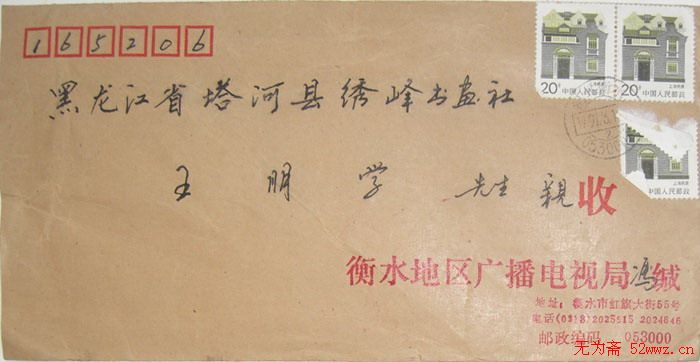 165206
黑龙江省塔河县绣峰书画社
王明学 先生 親收
衡水地区广播电视局冯缄
地址:衡水市红旗大街55号
电话(0318)2025515 2024646
邮政编码 053000
20分 上海民居
中国人民邮政
20分 上海民居
中国人民邮政
上海民居
中国人民邮政
053000
无为斋 52wwz.cn